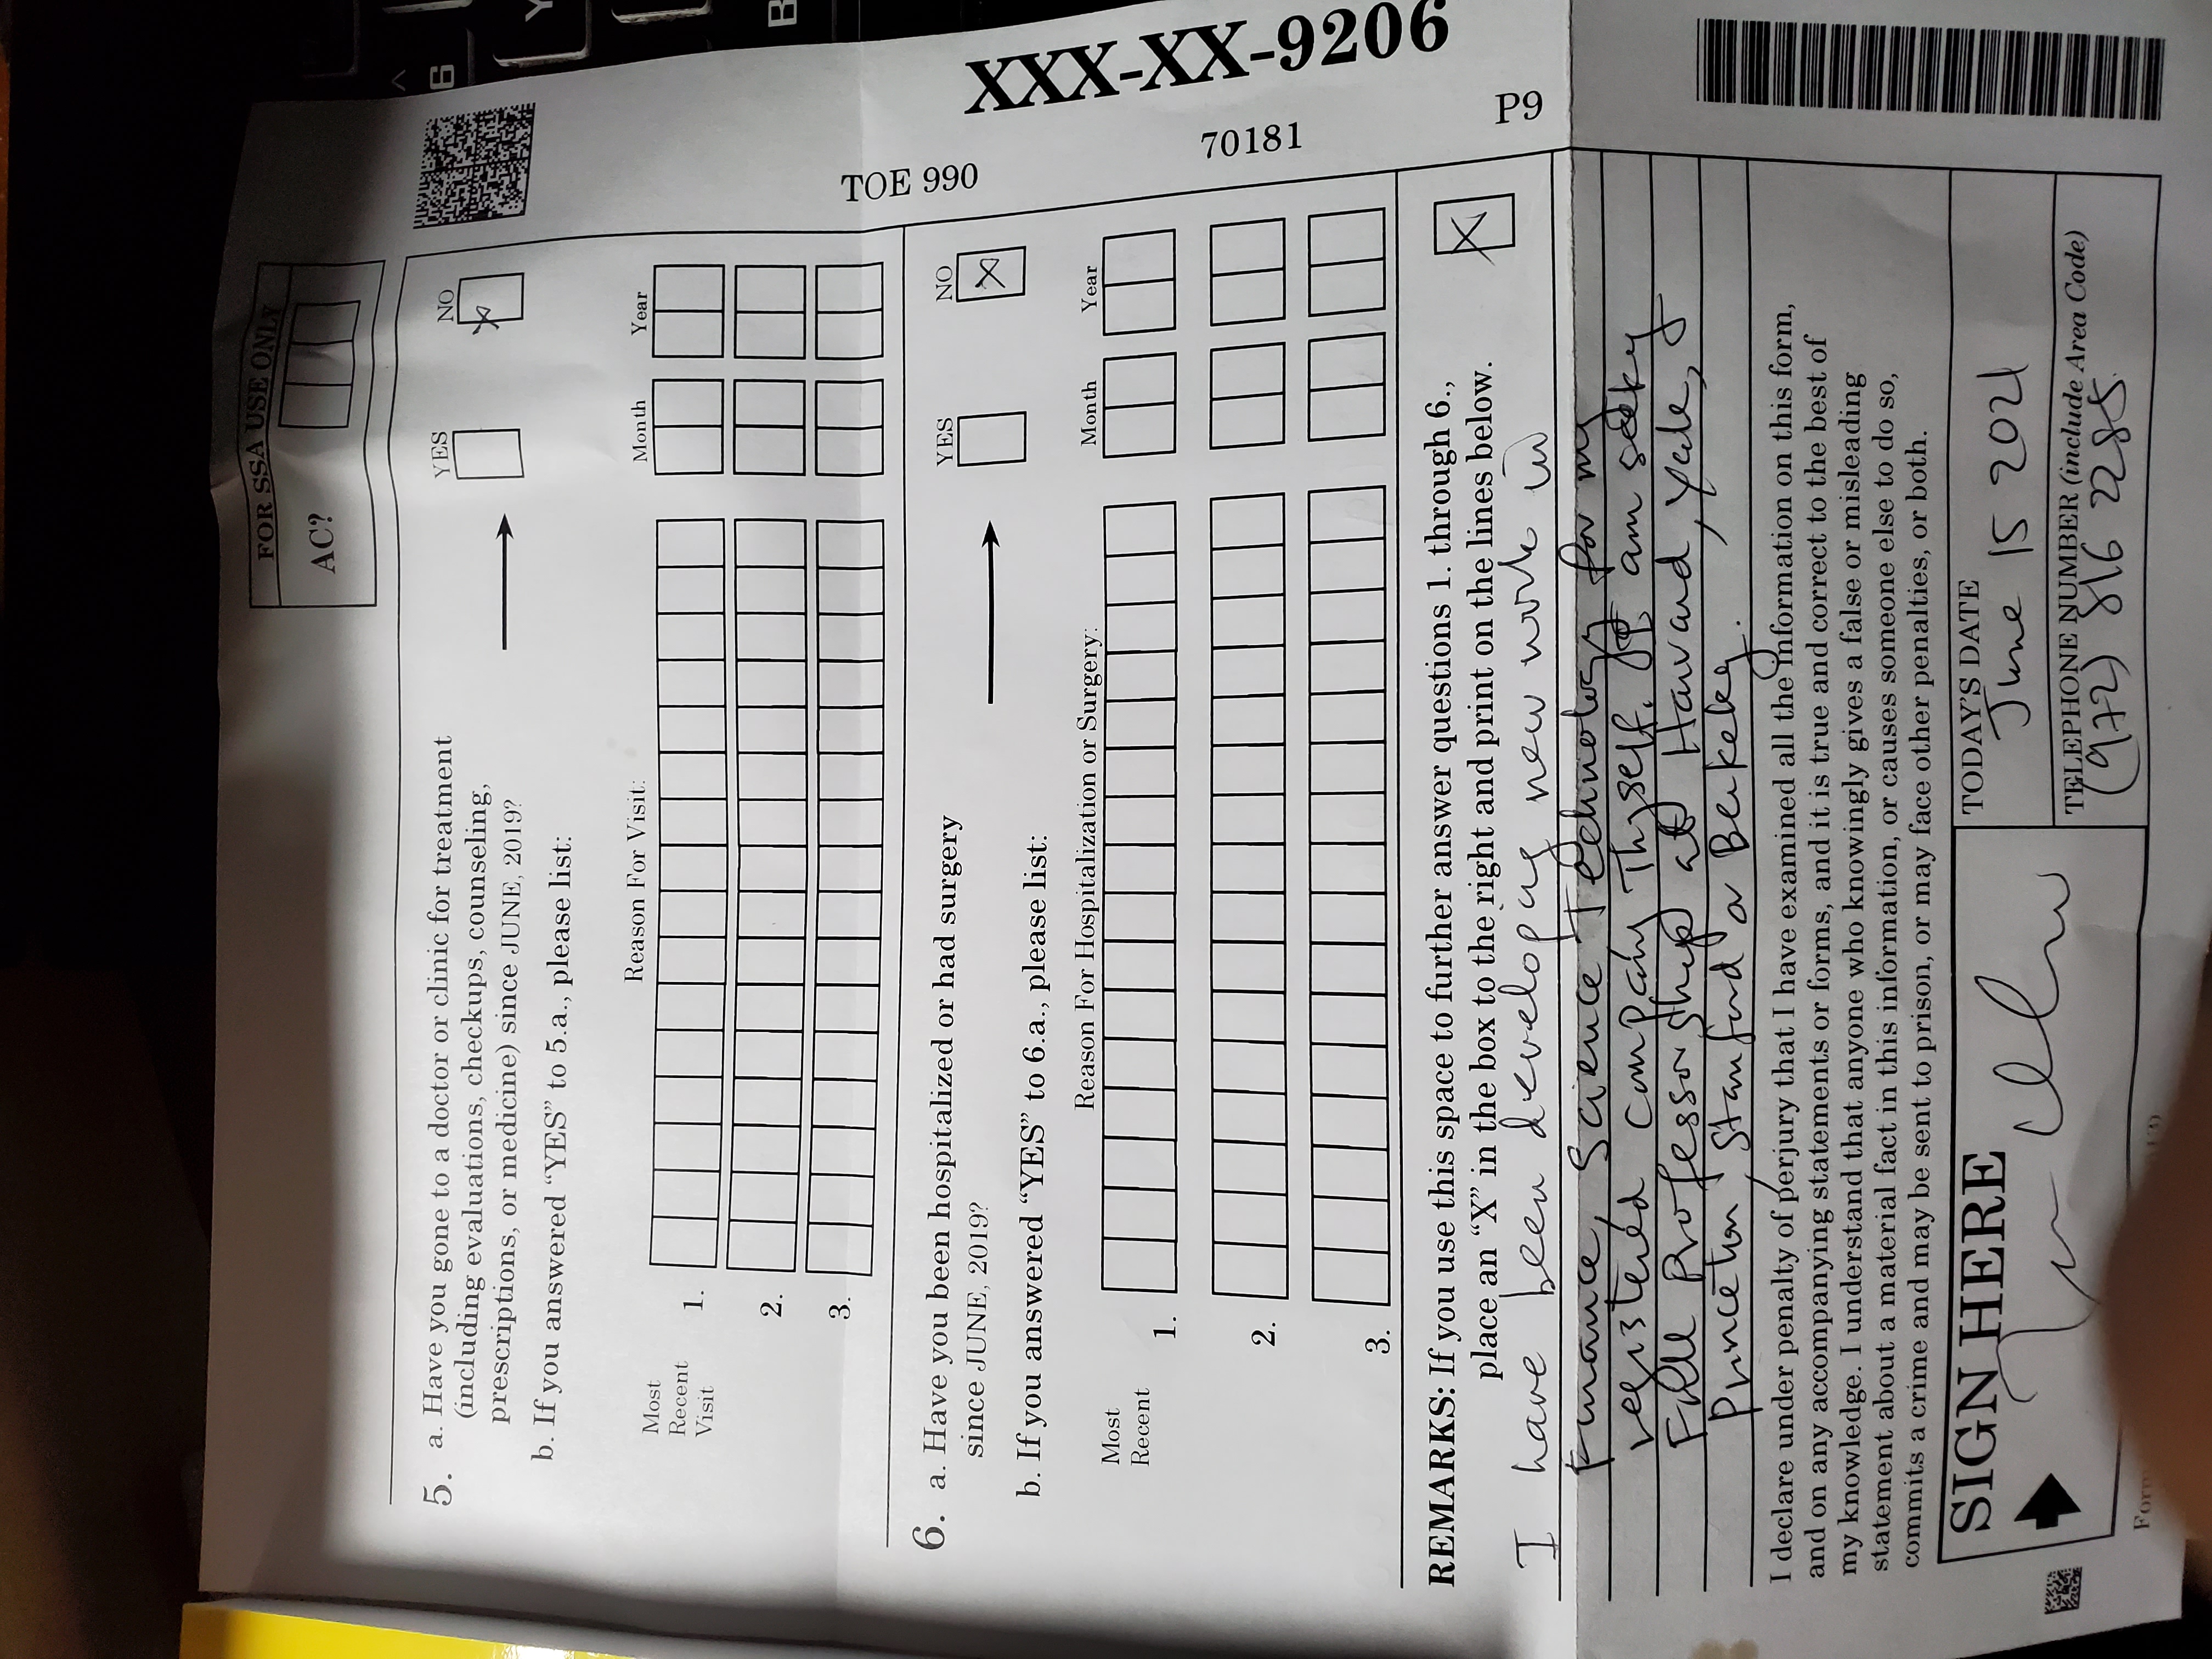 FOR SSA USE ONLY
AC?
5. a. Have you gone to a doctor or clinic for treatment
(including evaluations, checkups, counseling,
prescriptions, or medicine) since JUNE, 2019?
YES
NO
b. If you answered “YES” to 5.a., please list:
Reason For Visit:
Month
Year
Most
Recent
Visit
1.
2.
3.
6. a. Have you been hospitalized or had surgery
since JUNE, 2019?
YES
NO
b. If you answered “YES” to 6.a., please list:
Reason For Hospitalization or Surgery:
Month
Year
Most
Recent
1.
2.
3.
REMARKS: If you use this space to further answer questions 1. through 6.,
place an “X” in the box to the right and print on the lines below.
I have been developing new work in
Finance, Science, Technology for my
registered company Thyself. I am seeky
Full Professorship at Harvard, Yale,
Princeton, Stanford or Berkeley.
I declare under penalty of perjury that I have examined all the information on this form,
and on any accompanying statements or forms, and it is true and correct to the best of
my knowledge. I understand that anyone who knowingly gives a false or misleading
statement about a material fact in this information, or causes someone else to do so,
commits a crime and may be sent to prison, or may face other penalties, or both.
SIGN HERE
TODAY'S DATE
June 15 2021
TELEPHONE NUMBER (include Area Code)
(972) 816 2285
Form
TOE 990
70181
P9
XXX-XX-9206
6
Y
B